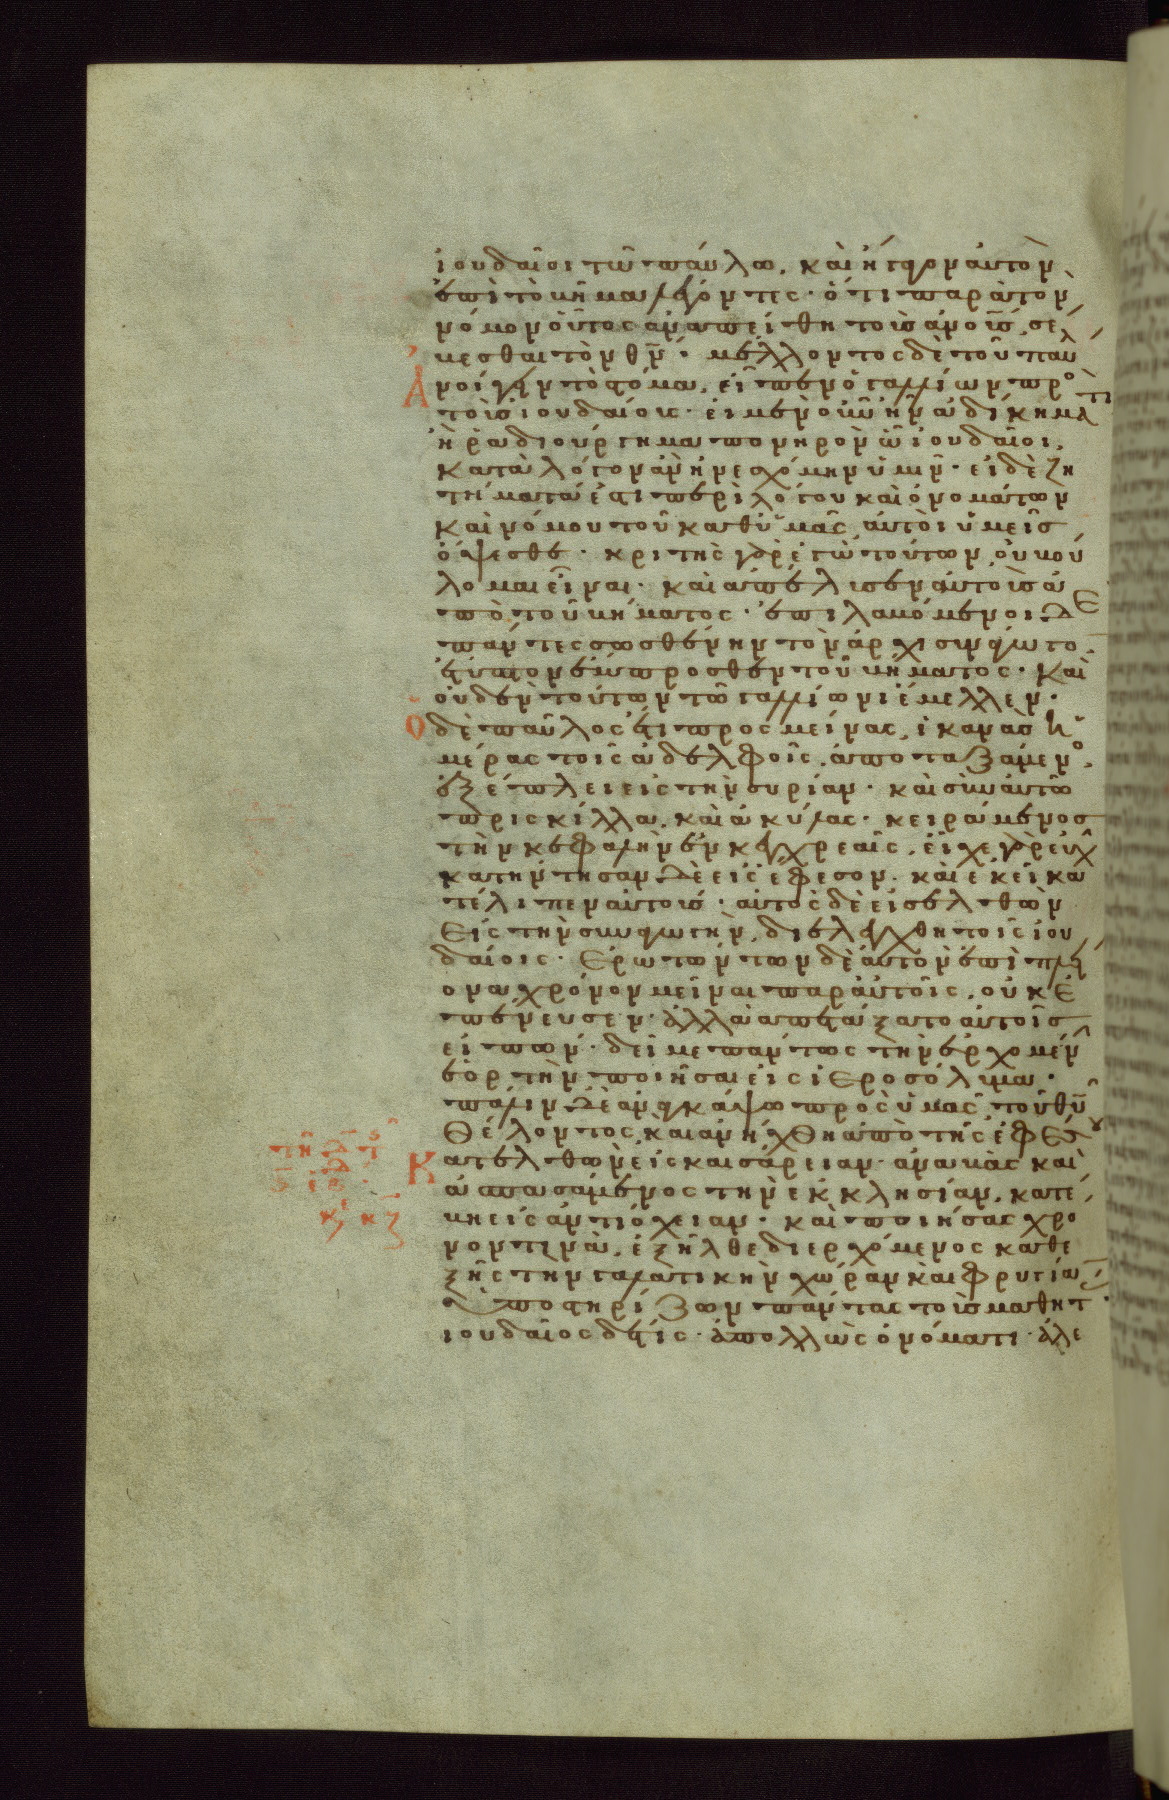 ἰουδαῖοι τῶ παύλω. καὶ ἤγαγον αὐτὸν
ἐπὶ τὸ βῆμα λέγοντες· ὅτι παρὰ τὸν
νόμον οὗτος ἀναπείθη τοὺς ἀνο͞υς σέ
βεσθαι τὸν θ͞ν· μέλλοντος δὲ τοῦ παυλ
ἀνοίγειν τὸ στόμα. εἶπεν ὁ γαλλίων προ
τοὺς ἰουδαίους· εἰ μὲν οὖν ἦν ἀδίκημά τι
ἢ ῥαδιούργημα πονηρὸν ὦ ἰουδαῖοι.
κατὰ λόγον ἂν ἠνεσχόμην ὑμῖν· εἰ δὲ ζη
τήματά ἐστι περὶ λόγου καὶ ὀνομάτων
καὶ νόμου τοῦ καθ ὑμᾶς αὐτοὶ ὑμεῖς
ὄψεσθε· κριτὴς γὰρ ἐγὼ τούτων οὐ βού
λομαι εἶναι· καὶ ἀπέλασεν αὐτοὺς ἀ
πὸ τοῦ βήματος· ἐπιλαβόμενοι δὲ
πάντες σωσθένην τὸν ἀρχισυνάγωγο
ἔτυπτον ἔμπροσθεν τοῦ βήματος· καὶ
οὐδὲν τούτων τῶ γαλλίωνι ἔμελλεν·
ὁ δὲ παῦλος ἔτι προσμείνας, ἱκανὰς ἡ
μέρας τοῖς ἀδελφοῖς. ἀποταξάμενο
ἐξέπλει εἰς τὴν συρίαν· καὶ σὺν αὐτῶ
πρισκίλλα. καὶ ἀκύλας· κειράμενος
τὴν κεφαλὴν ἐν κεγχρεαῖς. εἶχε γὰρ εὐχ
κατήντησαν δὲ εἰς ἔφεσον. καὶ ἐκεῖ κα
τέλιπεν αὐτούς· αὐτὸς δὲ εἰσελθὼν
εἰς τὴν συναγωγὴν. διελέχθη τοῖς ἰου
δαίοις· ἐρωτώντων δὲ αὐτὸν ἐπὶ πλεί
ονα χρόνον μεῖναι παρ αὐτοῖς. οὐκ ἐ
πένευσεν. ἀλλὰ ἀπετάξατο αὐτοῖς
εἰπών· δεῖ με πάντως τὴν ἐρχομένην
ἑορτὴν ποιῆσαι εἰς ἱεροσόλυμα·
πάλιν δὲ ἀνακάμψω πρὸς ὑμᾶς τοῦ θ͞υ
θέλοντος. καὶ ἀνήχθη ἀπὸ τῆς ἐφέσου
κατελθὼν εἰς καισάρειαν. ἀναβὰς καὶ
ἀσπασάμενος τὴν ἐκκλησίαν. κατέ
βη εἰς ἀντιόχειαν· καὶ ποιήσας χρό
νον τινὰ. ἐξῆλθε διερχόμενος καθε
ξῆς τὴν γαλατικὴν χώραν καὶ φρυγία
ὑποστηρίζων πάντας τοὺς μαθητ
ἰουδαῖος δέ τις· ἀπολλὼς ὀνόματι. ἀλε